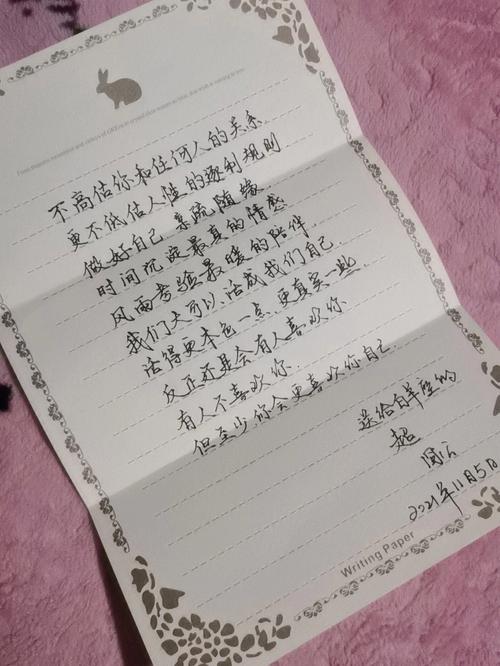 不高估你和任何人的关系
更不低估人性的逐利规则
做好自己 亲疏随缘
时间沉淀最真的情感
风雨考验最暖的陪伴
我们大可以活成我们自己.
活得更本色一点.更真实一些
反正还是会有人喜欢你
有人不喜欢你.
但至少你会更喜欢你自己
送给自己的
超
2021年11月5日
Writing Paper